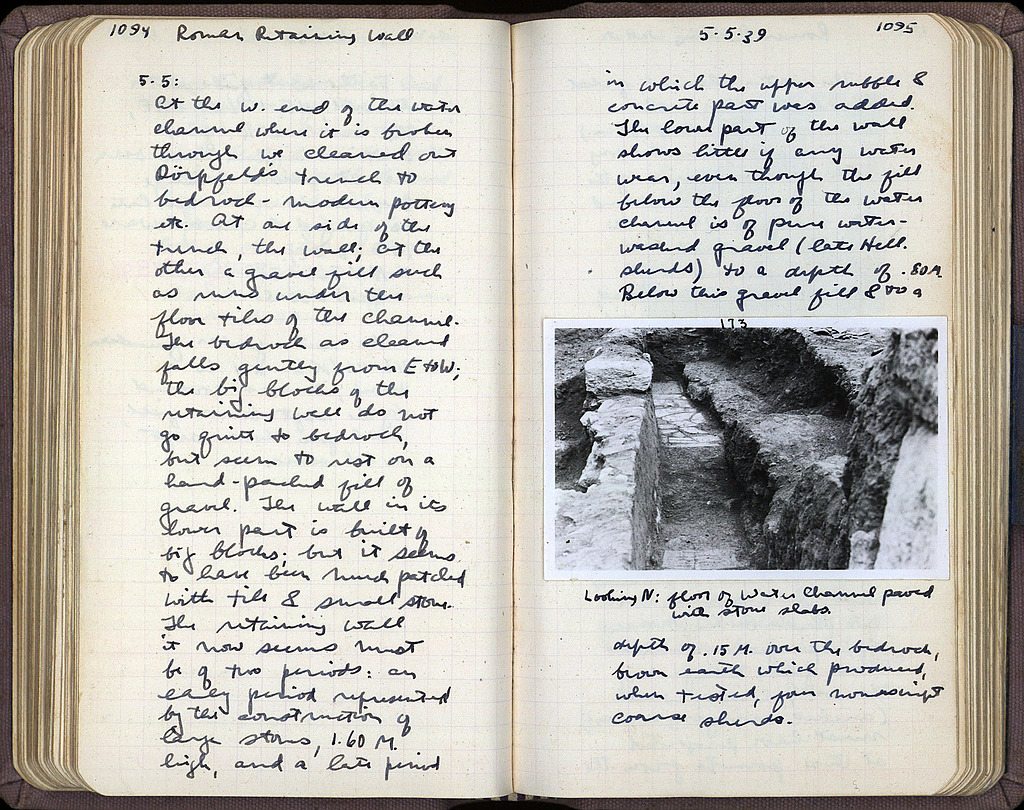 1094 Roman Retaining Wall
5.5:
At the W. end of the water
channel where it is broken
through we cleaned out
Dörpfeld's trench to
bedrock - modern pottery
etc. At one side of the
trench, the wall; at the
other a gravel fill such
as runs under the
floor tiles of the channel.
The bedrock as cleaned
falls gently from E to W;
the big blocks of the
retaining wall do not
go quite to bedrock,
but seem to rest on a
hard-packed fill of
gravel. The wall in its
lower part is built of
big blocks; but it seems
to have been much patched
with tile & small stone.
The retaining wall
it now seems must
be of two periods: an
early period represented
by the construction of
large stones, 1.60 M.
high, and a late period
5.5.39 1095
in which the upper rubble &
concrete part was added.
The lower part of the wall
shows little if any water
wear, even though the fill
below the floor of the water
channel is of pure water-
washed gravel (late Hell.
sherds) to a depth of .80 M.
Below this gravel fill & to a
173
Looking N: floor of Water Channel paved
with stone slabs.
depth of .15 M. over the bedrock,
brown earth which produced,
when tested, four nondescript
coarse sherds.